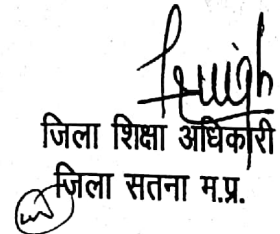 जिला शिक्षा अधिकारी
जिला सतना म.प्र.